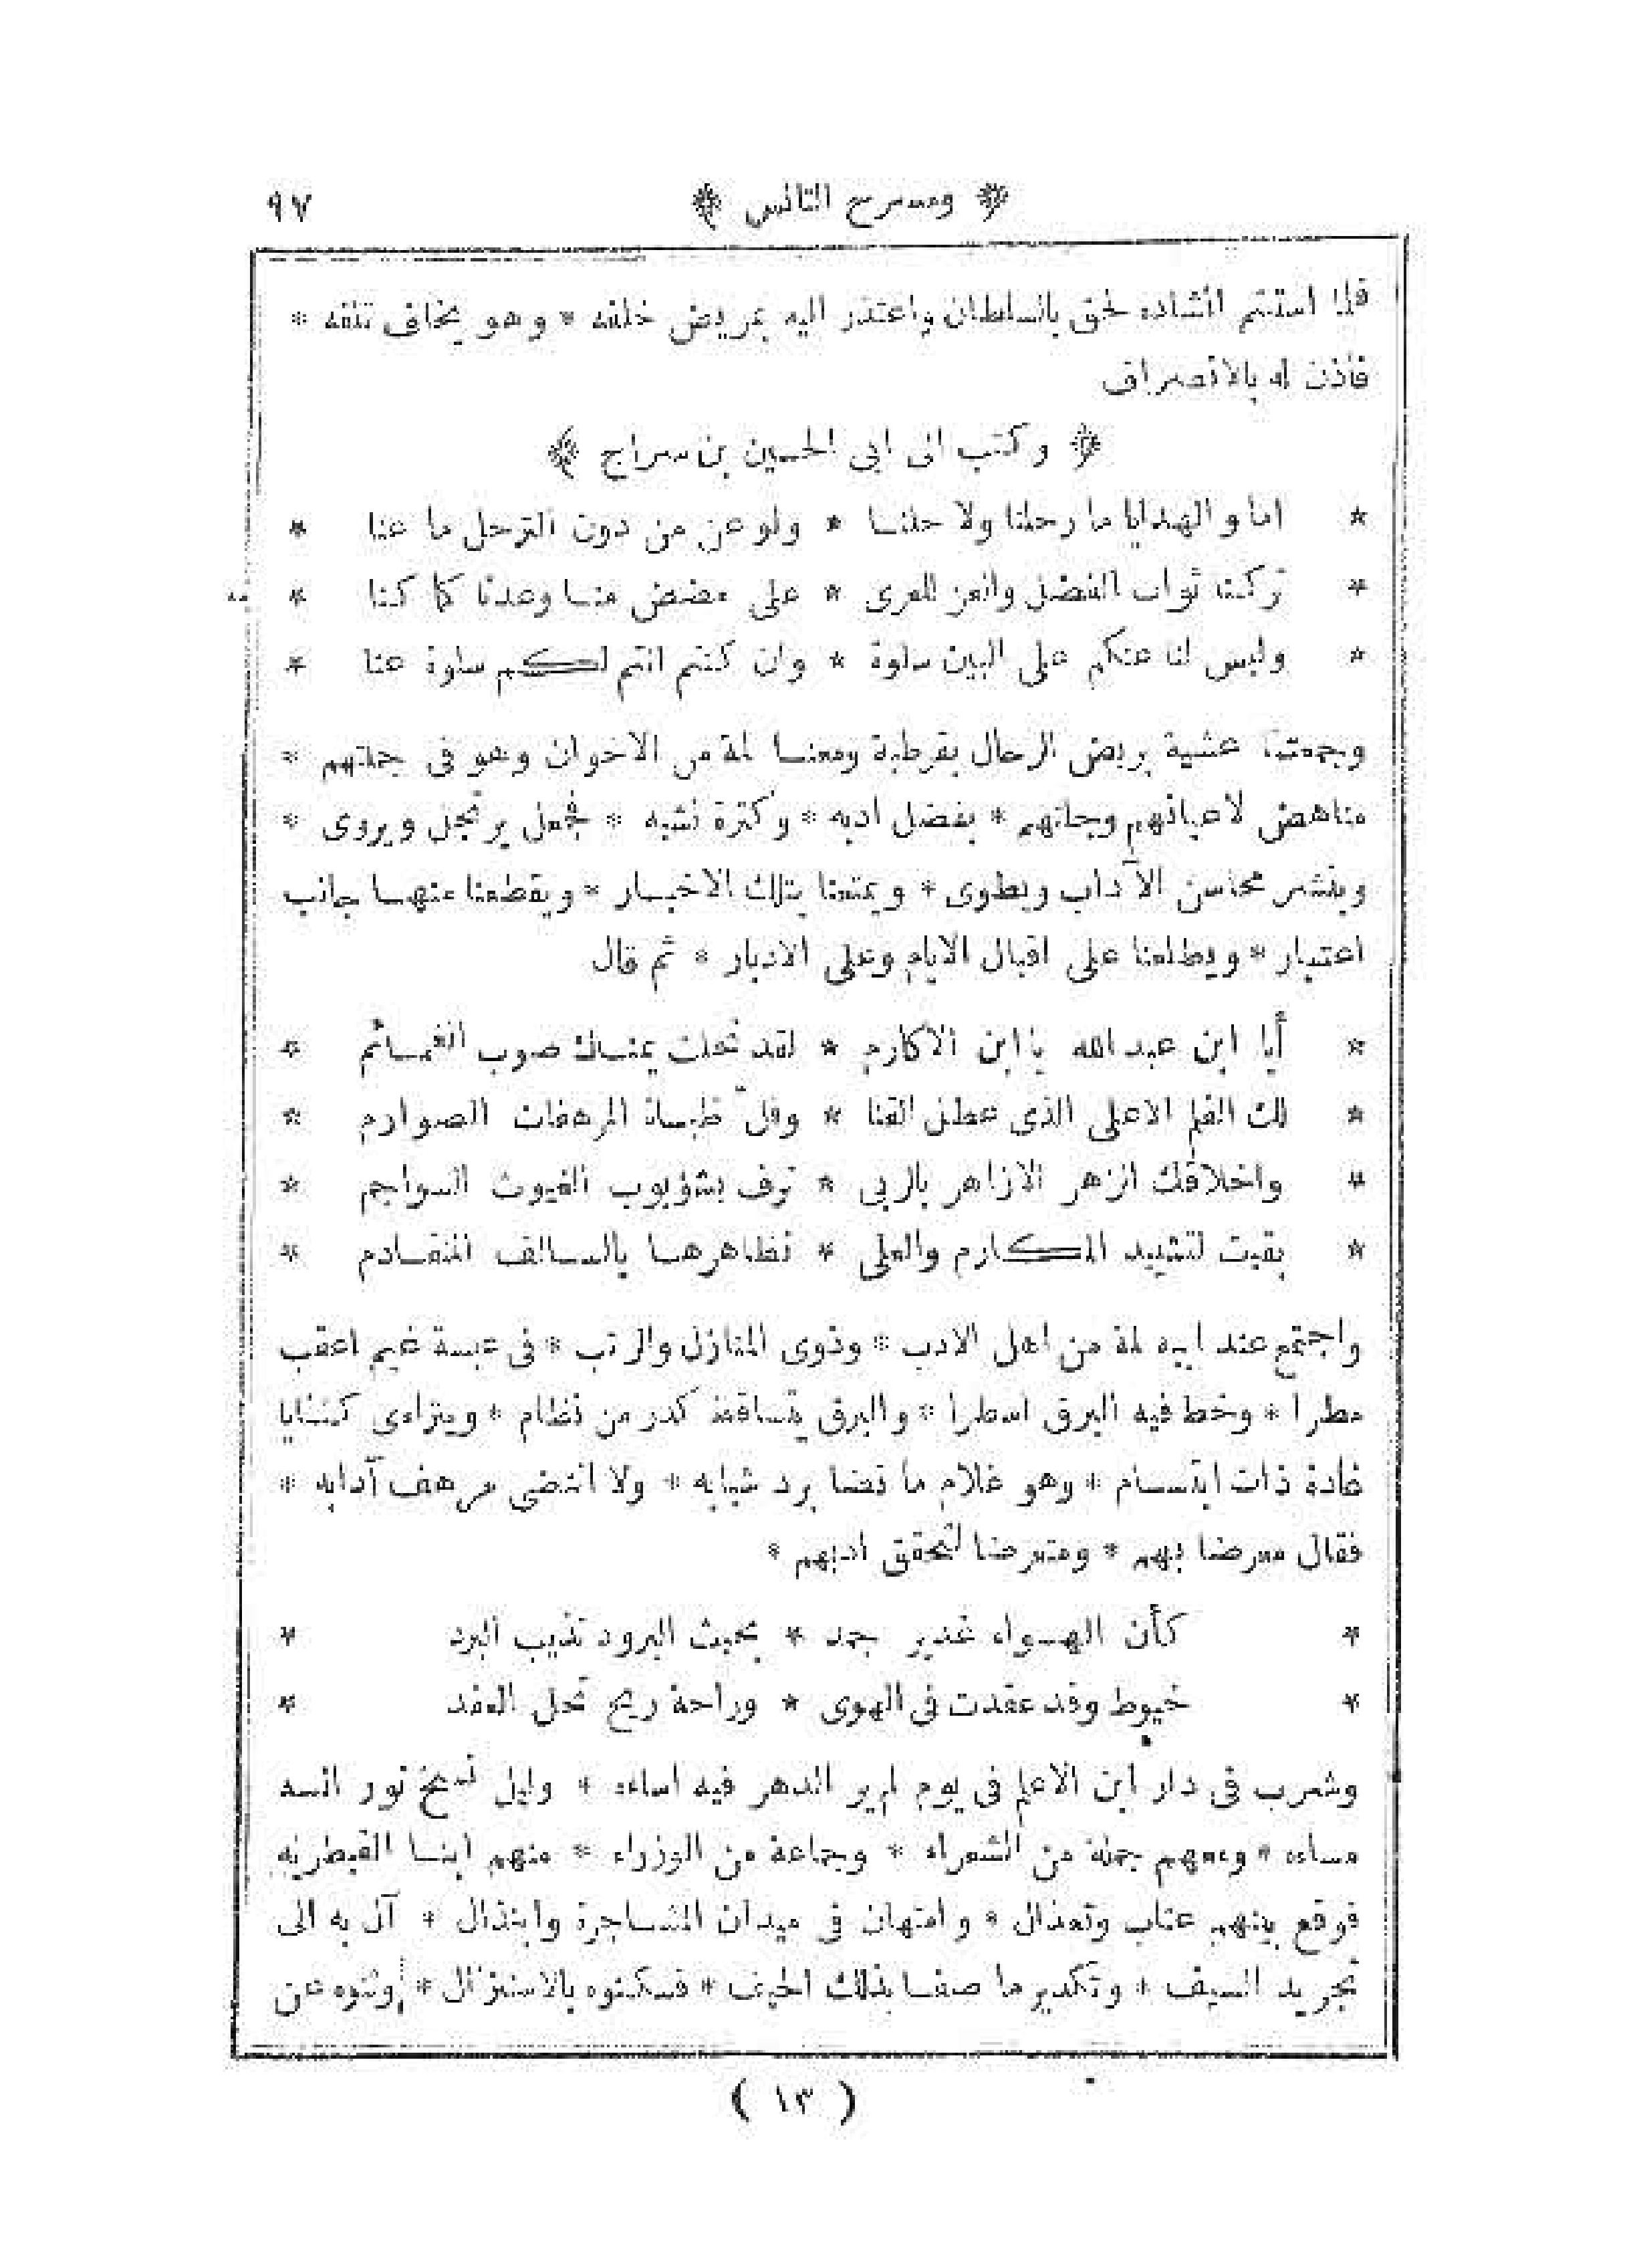 ﴿ ومسرح التانس ﴾ ٩٧
فلما استتم انشاده لحق بالسلطان واعتذر اليه بمريض خلفه * وهو يخاف تلفه *
فأذن له بالانصراف
﴿ وكتب الى ابى الحسين بن سراج ﴾
* اما و الهدايا ما رحلنا ولا حلنا * ولو عن من دون الترحل ما عنا *
* تركنا ثواب الفضل والعز للعرى * على مضض منا وعدنا كما كنا *
* وليس لنا عنكم على البين سلوة * وان كنتم انتم لكم سلوة عنا *
وجمعتنا عشية بربض الرحال بقرطبة ومعنا لمة من الاخوان وهو فى جملتهم *
مناهض لاعيانهم وجلتهم * بفضل ادبه * وكثرة نشبه * فجعل يرتجل ويروى *
وينشر محاسن الآداب ويطوى * ويمتعنا بتلك الاخبار * ويقطعنا منها جانب
اعتبار * ويطلعنا على اقبال الايام وعلى الادبار * ثم قال
* أيا ابن عبد الله يا ابن الاكارم * لقد نحلت يمناك صوب الغمائم *
* لك القلم الاعلى الذى عطل القنا * وفلّ ظباة المرهفات الصوارم *
* واخلاقك الزهر الازاهر بالربى * ترف بشؤبوب الغيوث السواجم *
* بقيت لتشييد المكارم والعلى * تظاهرها بالسالف المتقادم *
واجتمع عند ابيه لمة من اهل الادب * وذوى المنازل والرتب * فى عبسة غيم اعقب
مطرا * وخط فيه البرق اسطرا * والبرق يتساقط كدر من نظام * ويتراءى كثنايا
غادة ذات ابتسام * وهو غلام ما نضا برد شبابه * ولا انتضى مرهف آدابه *
فقال معرضا بهم * ومتعرضا لتحقق ادبهم *
* كأن الهواء غدير جمد * بحيث البرود تذيب البرد *
* خيوط وقد عقدت فى الهوى * وراحة ريح تحل العقد *
وشرب فى دار ابن الاعلم فى يوم لم ير الدهر فيه اساءه * وليل نسخ نور انسه
مساءه * ومعهم جملة من الشعراء * وجماعة من الوزراء * منهم ابنا القبطرنه
فوقع بينهم عتاب وتعذال * وامتهان فى ميدان المشاجرة وابتذال * آل به الى
تجريد السيف * وتكدير ما صفا بذلك الحيف * فسكنوه بالاستنزال * وثنوه عن
( ١٣ )